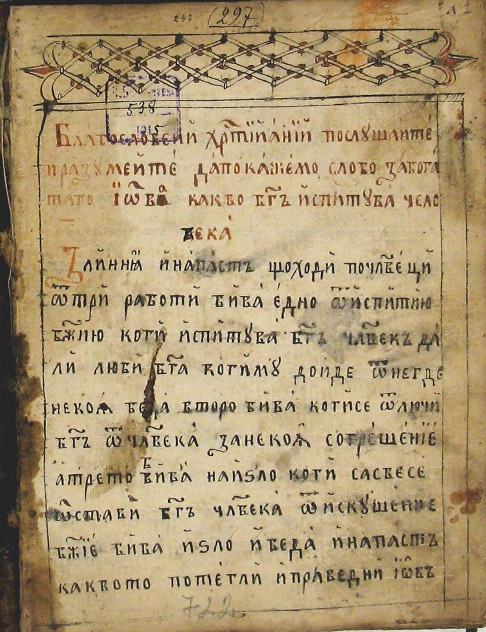 297 (297)
538
1915
Благословенїй хрⷭ҇тїйанїй послꙋшайте
и разꙋмейте да покажемо слово за бога
таго їѡ҆ва какво бг҃ъ испитꙋва чело
века
Злиннꙗ и напасть що ходи по чл҃вещи
ѿ три работи бива едно ѿ испитию
бж҃ию коги испитꙋва бг҃ъ чл҃векъ да
ли люби бг҃а когимꙋ доиде ѿнегде
некоѧ беда второ бива коги се ѿлꙋчи
бг҃ъ ѿ чл҃века за некоѧ согрешенїе
а трето бива найѕло коги сасвесе
ѡстави бг҃ъ чл҃века ѿ искꙋшенїе
бж҃їе бива и ѕло и беда и напасть
каквото потегли и праведни їѡвъ